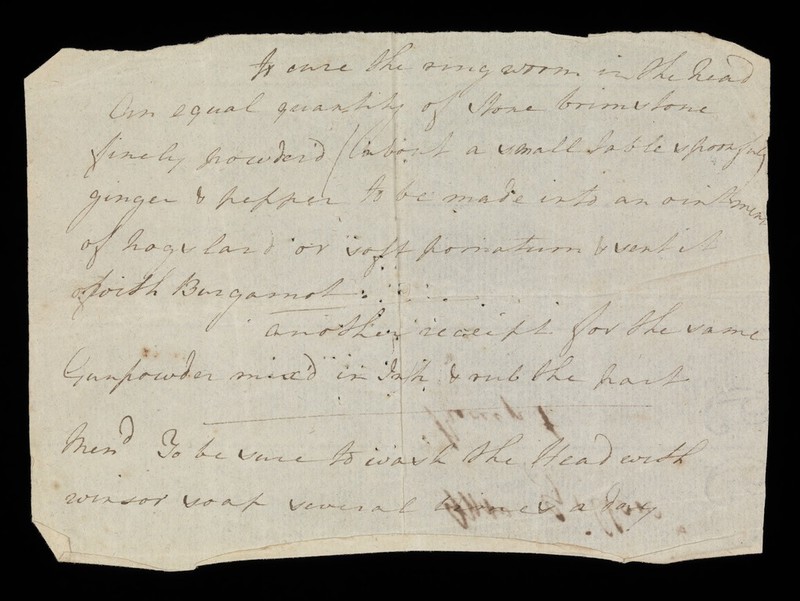 To cure the ring worm in the head
An equal quantity of stone brimstone
finely powder'd (about a small table spoonful)
ginger & pepper to be made into an ointment
of hogs lard or soft pomatum & sent it
with Burgamot
another receipt for the same
Gunpowder mix'd in Ink & rub the part
Mem<sup>d</sup> To be sure to wash the Head with
winsor soap several times a day